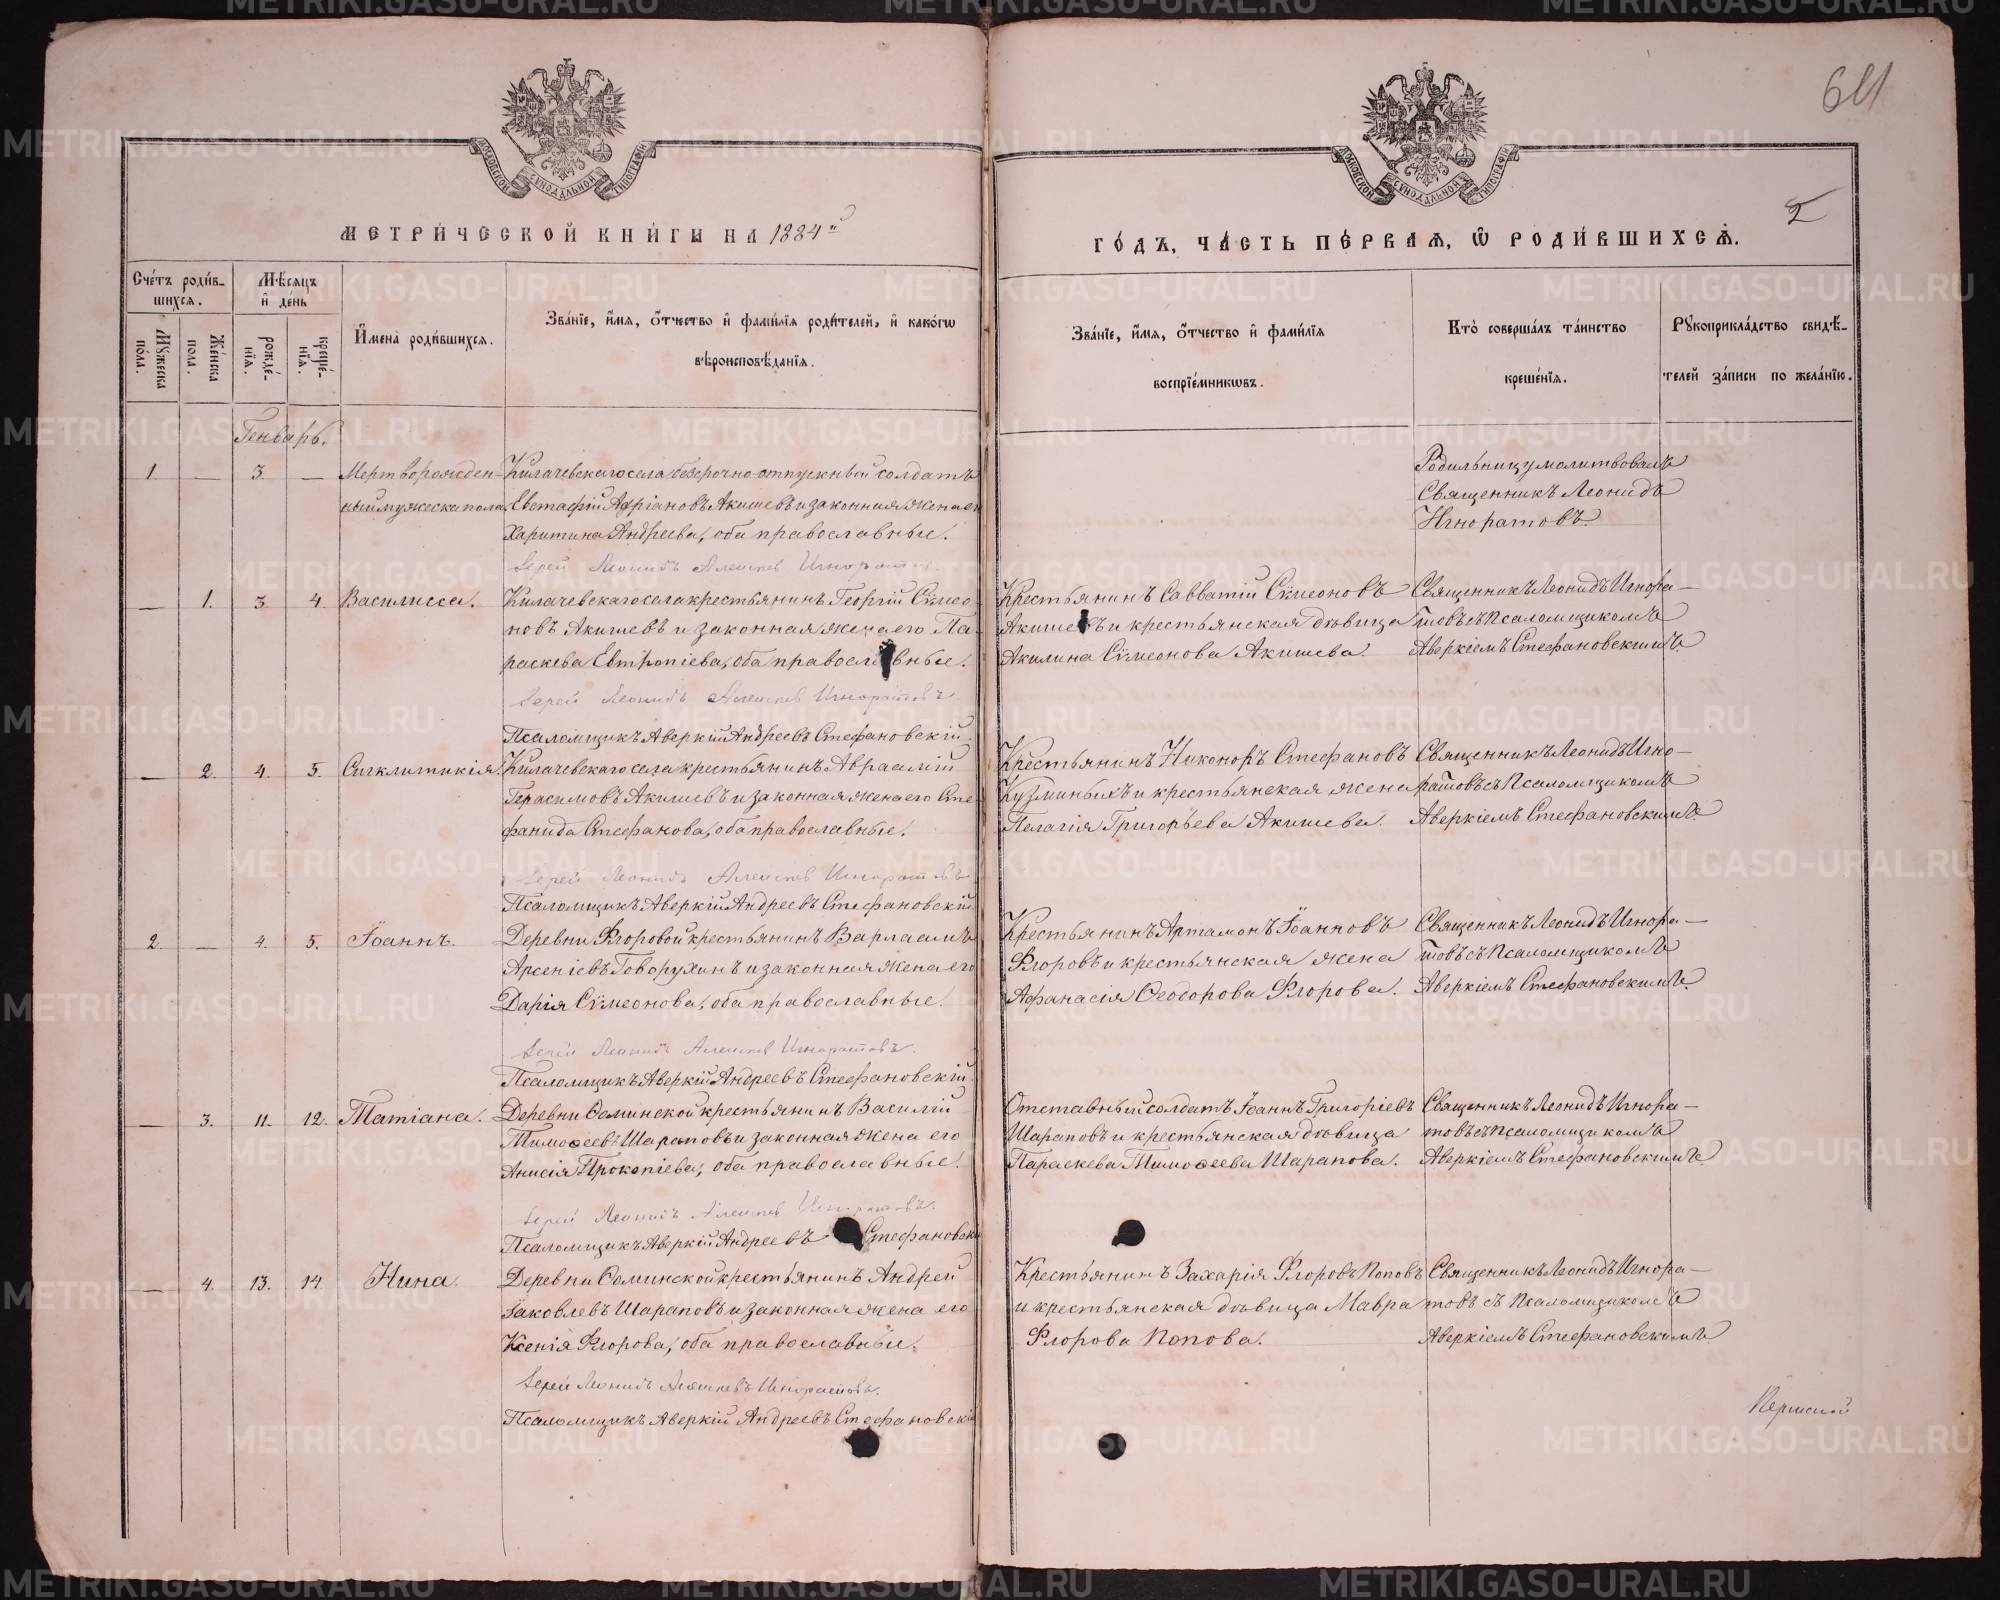 641
2
МЕТРИ́ЧЕСКОЙ КНИ́ГИ НА 1884й
ГО́ДЪ, ЧА́СТЬ ПЕ́РВАѦ, Ѽ РОДИ́ВШИХСѦ.
Сче́тъ роди́в-
шихсѧ.
Мѣ́сѧцъ
и҆ де́нь
Мꙋ́жеска по́ла.
Же́нска пола.
рожде́-
нїѧ.
креще́-
нїѧ.
И҆мена̀ роди́вшихсѧ.
Зва́нїе, и҆́мѧ, ѻ҆́тчество и҆ фами́лїѧ роди́телей, и҆ како́гѡ
вѣроисповѣ́данїѧ.
Зва́нїе, и҆́мѧ, ѻ҆́тчество и҆ фами́лїѧ
воспрїе́мникѡвъ.
Кто̀ соверша́лъ та́инство
креще́нїѧ.
Рꙋкоприкла́дство свидѣ́-
телей за́писи по жела́нїю.
Генварь.
1. — 3. — Мертворожден-
ный мужеска пола.
Килачевскаго села безсрочно-отпускный солдатъ
Евстафій Адріановъ Акишевъ и законная жена его
Харитина Андреева, оба православные.
Іерей Леонидъ Алексѣев Игноратовъ
Родильницу молитвовалъ
Священникъ Леонидъ
Игноратовъ.
— 1. 3. 4. Василисса.
Килачевскаго села крестьянинъ Георгій Сѵмео-
новъ Акишевъ и законная жена его Па-
раскева Евтропіева, оба православные.
Іерей Леонидъ Алексѣев Игноратовъ
Псаломщикъ Аверкій Андреевъ Стефановскій
Крестьянинъ Савватій Сѵмеоновъ
Акишевъ и крестьянская дѣвица
Акилина Сѵмеонова Акишева.
Священникъ Леонидъ Игнора-
товъ съ Псаломщикомъ
Аверкіемъ Стефановскимъ.
— 2. 4. 5. Сигклитикія.
Килачевскаго села крестьянинъ Авраамій
Герасимовъ Акишевъ и законная жена его Сте-
фанида Стефанова, оба православные.
Іерей Леонидъ Алексѣев Игноратовъ
Псаломщикъ Аверкій Андреевъ Стефановскій
Крестьянинъ Никоноръ Стефановъ
Кузминыхъ и крестьянская жена
Пелагія Григорьева Акишева.
Священникъ Леонидъ Игно-
ратовъ съ Псаломщикомъ
Аверкіемъ Стефановскимъ.
2. — 4. 5. Іоаннъ.
Деревни Флоровой крестьянинъ Варлаамъ
Арсеніевъ Говорухинъ и законная жена его
Дарія Сѵмеонова, оба православные.
Іерей Леонидъ Алексѣев Игноратовъ.
Псаломщикъ Аверкій Андреевъ Стефановскій
Крестьянинъ Артамонъ Іоанновъ
Флоровъ и крестьянская жена
Афанасія Ѳеодорова Флорова.
Священникъ Леонидъ Игнора-
товъ съ Псаломщикомъ
Аверкіемъ Стефановскимъ.
— 3. 11. 12. Татіана.
Деревни Осминской крестьянинъ Василій
Тимоѳеевъ Шараповъ и законная жена его
Анисія Прокопіева, оба православные.
Іерей Леонидъ Алексѣев Игноратовъ.
Псаломщикъ Аверкій Андреевъ Стефановскій
Отставный солдатъ Іоаннъ Григоріевъ
Шараповъ и крестьянская дѣвица
Параскева Тимоѳеева Шарапова.
Священникъ Леонидъ Игнора-
товъ съ Псаломщикомъ
Аверкіемъ Стефановскимъ.
— 4. 13. 14. Нина.
Деревни Осминской крестьянинъ Андрей
Іаковлевъ Шараповъ и законная жена его
Ксенія Флорова, оба православные.
Іерей Леонидъ Алексѣевъ Игноратовъ.
Псаломщикъ Аверкій Андреевъ Стефановскій
Крестьянинъ Захарія Флоровъ Поповъ
и крестьянская дѣвица Мавра
Флорова Попова.
Священникъ Леонидъ Игнора-
товъ съ Псаломщикомъ
Аверкіемъ Стефановскимъ
Пермской